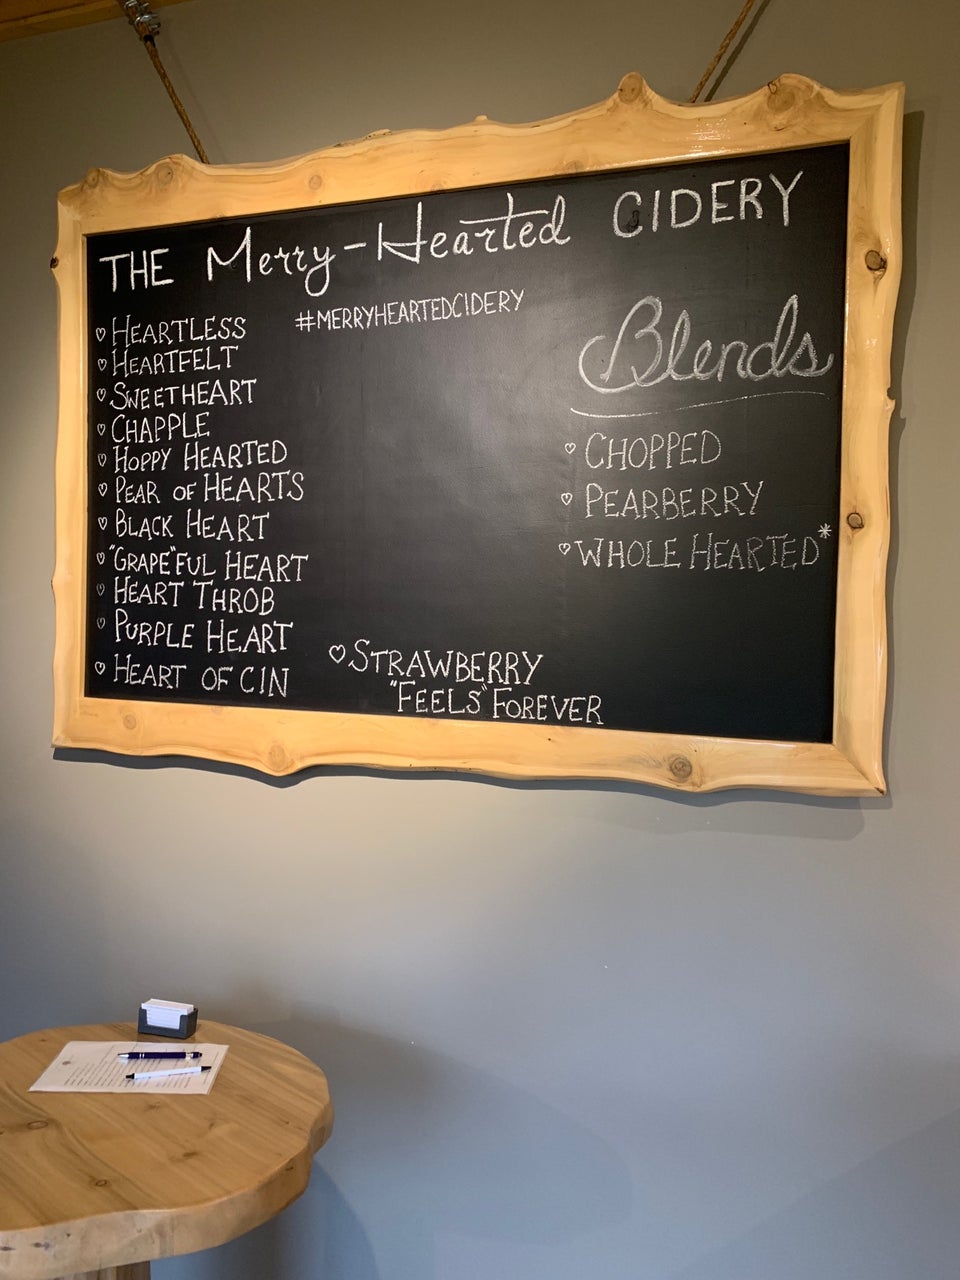 THE Merry-Hearted CIDERY
#MERRYHEARTEDCIDERY
♡ HEARTLESS
♡ HEARTFELT
♡ SWEETHEART
♡ CHAPPLE
♡ HOPPY HEARTED
♡ PEAR OF HEARTS
♡ BLACK HEART
♡ "GRAPE"FUL HEART
♡ HEART THROB
♡ PURPLE HEART
♡ HEART OF CIN
♡ STRAWBERRY
"FEELS" FOREVER
Blends
♡ CHOPPED
♡ PEARBERRY
♡ WHOLE HEARTED*